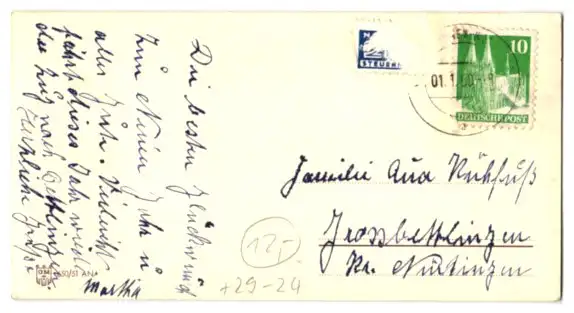 Die besten Glückwünsch
zum Neuen Jahr u.
alles Gute. Vielleicht
fährt dieses Jahr wied
der Zug nach
Herzliche Grüße
Martha
STEUERM
01.1.50-
10
DEUTSCHE POST
Familie Aua Kühfuß
Grossbettlingen
Kr. Nürtingen
12,-
+29-24
450/51 AN